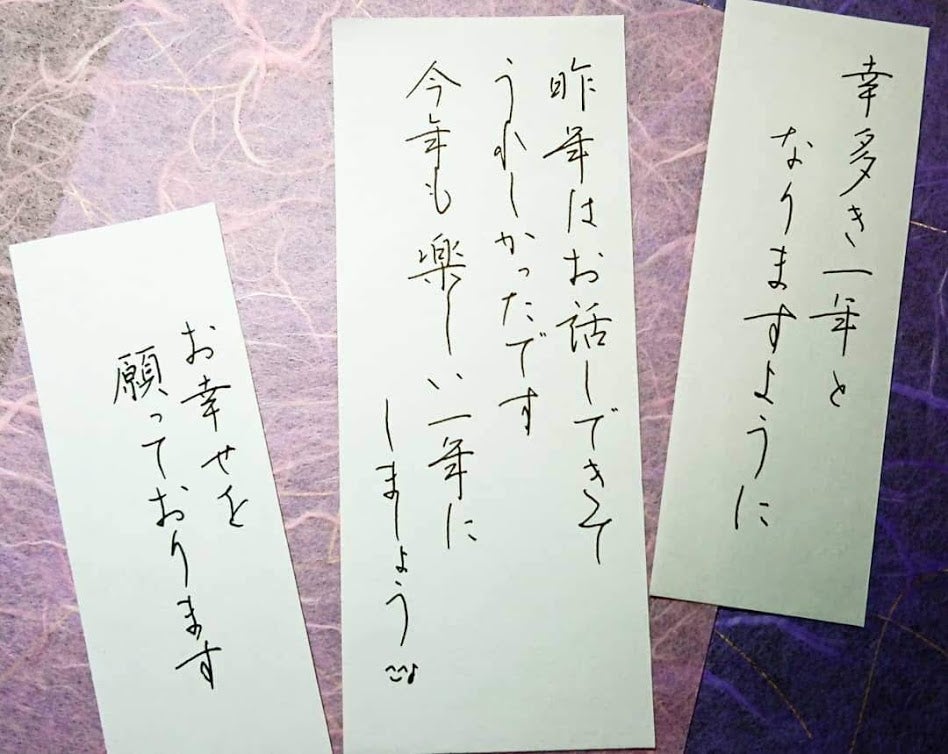 幸多き一年と
なりますように
昨年はお話しできて
うれしかったです
今年も楽しい一年に
しましょう
お幸せを
願っております